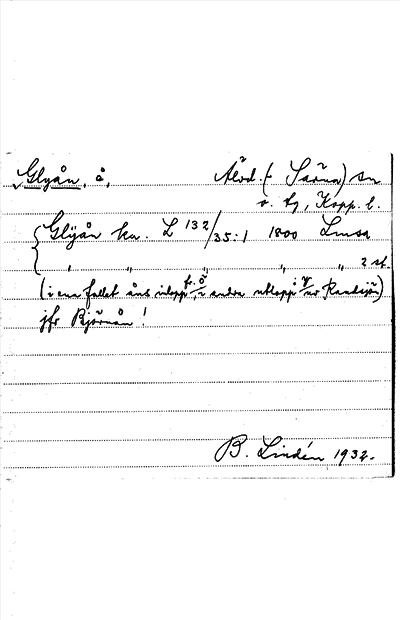 Glyån, å,   Älvd. (Särna) sn
o. tg, Kopp. l.
Glÿån ku. L 132/35:1 1800 Limsa
" " " " " 2 st.
(i ena fallet åns inlopp fr. ö, i andra utlopp i ur Randsjön)
jfr Björnån!
B. Lindén 1932.